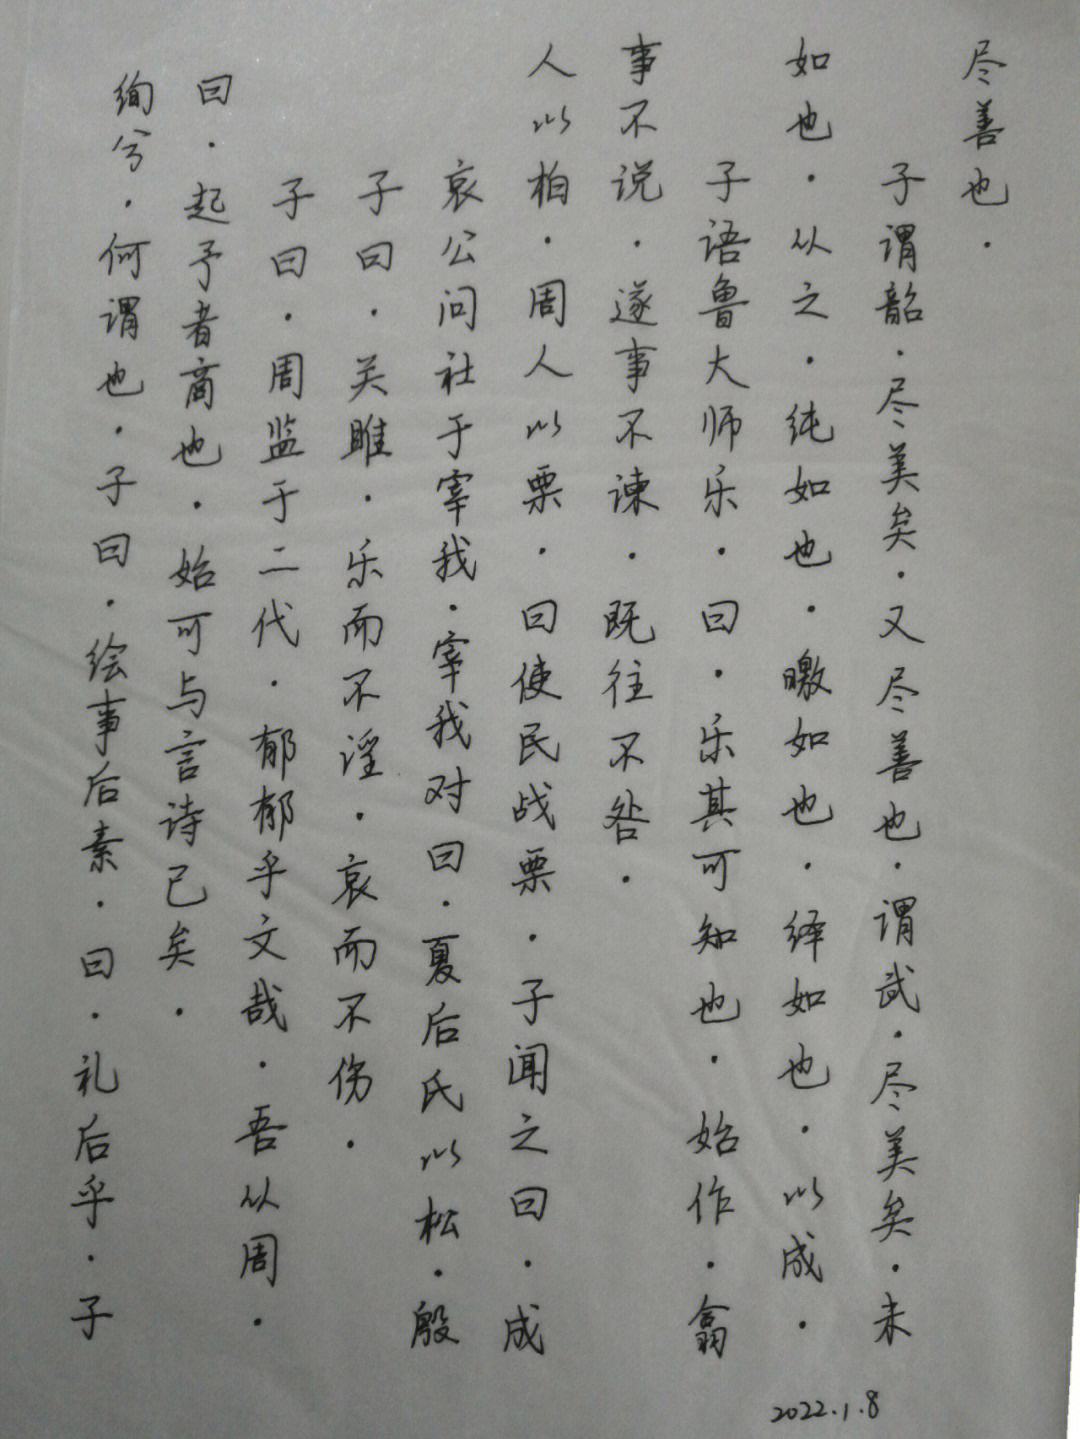 绚兮·何谓也·子曰·绘事后素·曰·礼后乎·子
曰·起予者商也·始可与言诗已矣·
子曰·周监于二代·郁郁乎文哉·吾从周·
子曰·关雎·乐而不淫·哀而不伤·
哀公问社于宰我·宰我对曰·夏后氏以松·殷
人以柏·周人以栗·曰使民战栗·子闻之曰·成
事不说·遂事不谏·既往不咎·
子语鲁大师乐·曰·乐其可知也·始作·翕
如也·从之·纯如也·皦如也·绎如也·以成·
子谓韶·尽美矣·又尽善也·谓武·尽美矣·未
尽善也·
2022.1.8